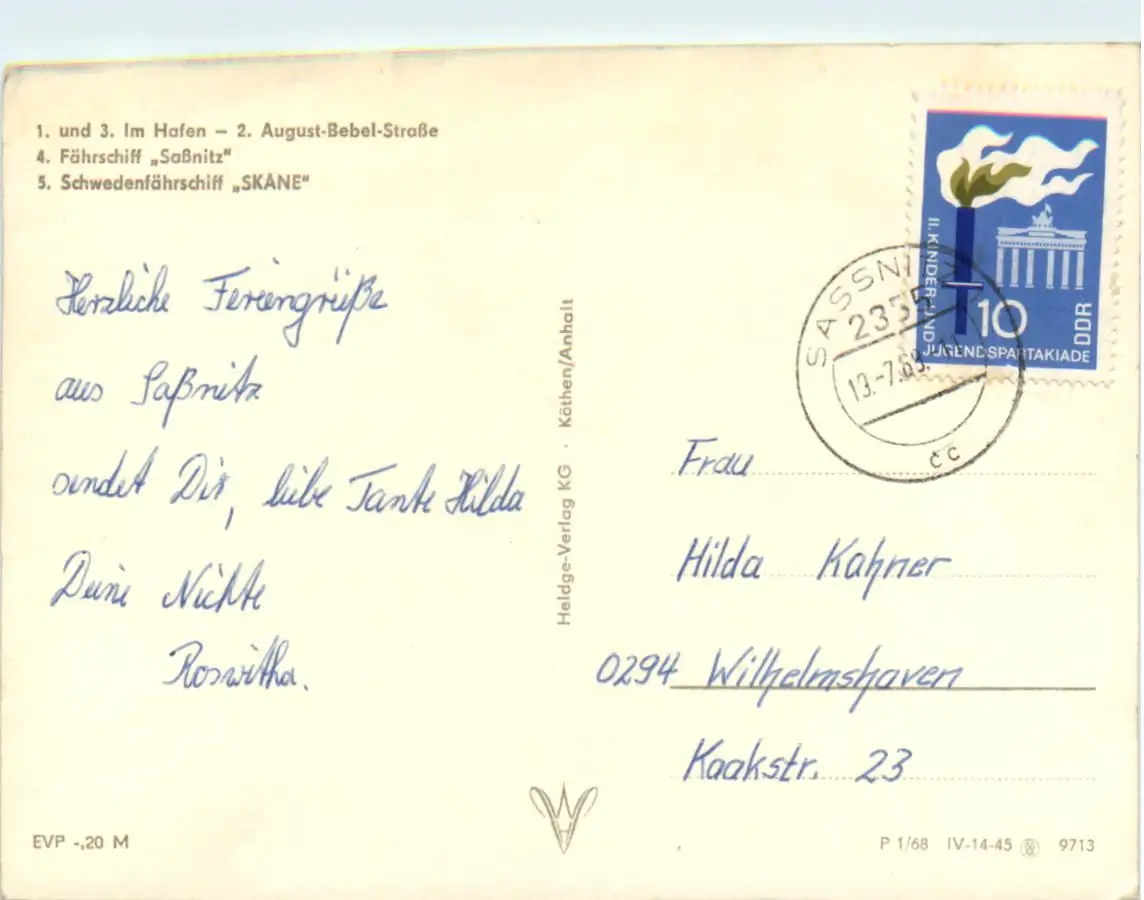 1. und 3. Im Hafen – 2. August-Bebel-Straße
4. Fährschiff „Saßnitz"
5. Schwedenfährschiff „SKANE"
Herzliche Feriengrüße
aus Saßnitz
sendet Dir, liebe Tante Hilda
Deine Nichte
Roswitha.
Heldge-Verlag KG · Köthen/Anhalt
II. KINDER- UND
JUGENDSPARTAKIADE
10
DDR
SASSNITZ
2355
cc
Frau
Hilda Kahner
0294 Wilhelmshaven
Kaakstr. 23
EVP -,20 M
P 1/68 IV-14-45 9713